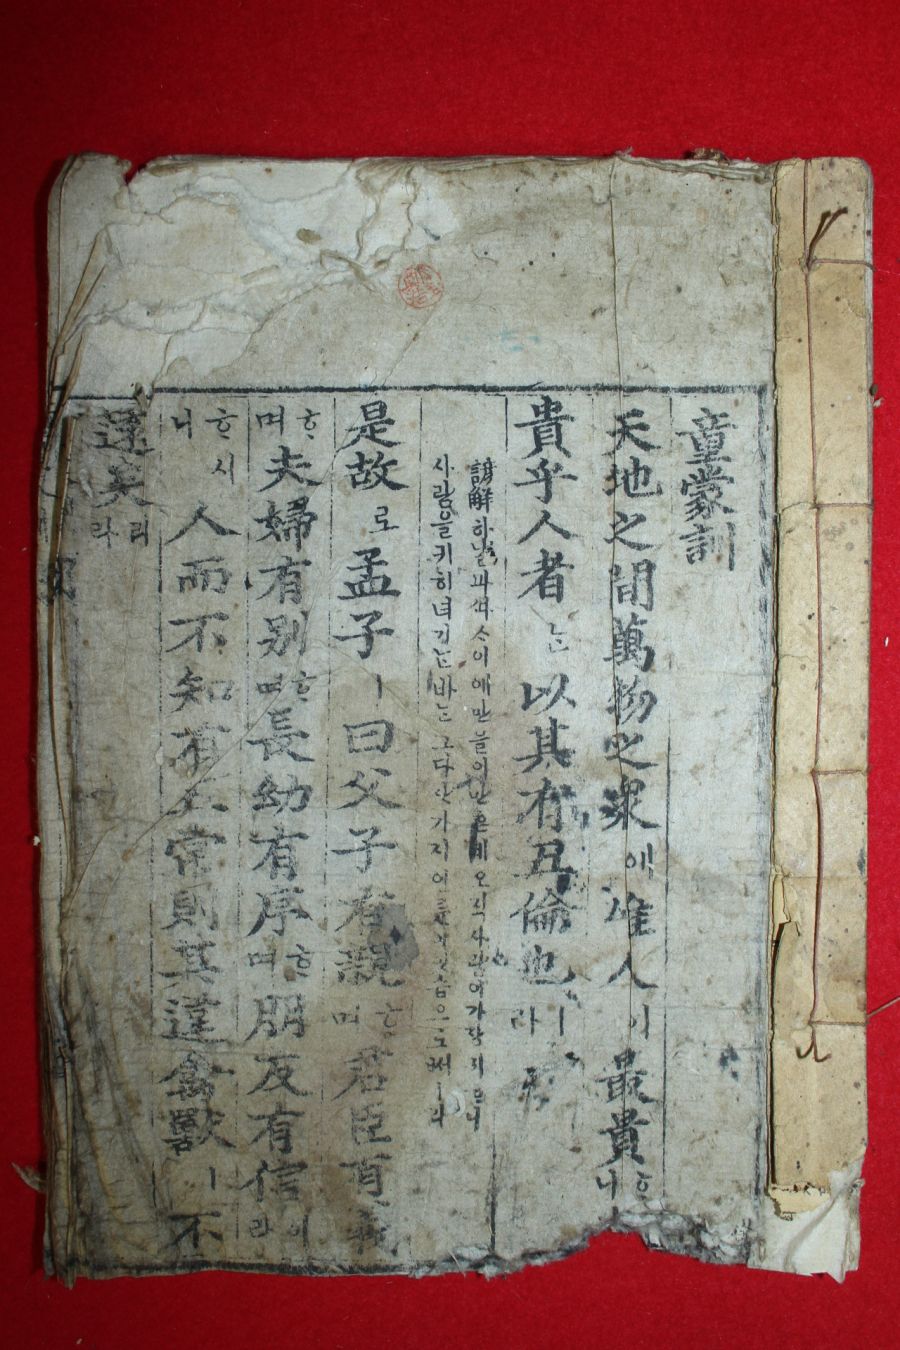 童蒙訓
天地之間萬物之衆애唯人이最貴ᄒᆞ니
貴乎人者ᄂᆞᆫ以其有五倫也ㅣ라
諺解하날과ᄯᅡ ᄉᆞ이에만물이만흔ᄃᆡ오직사람이가장귀ᄒᆞ니
사람을귀히녀기ᄂᆞᆫ바ᄂᆞᆫ그다ᄉᆞᆺ가지
是故로孟子ㅣ曰父子有親ᄒᆞ며君臣有義
ᄒᆞ며夫婦有別ᄒᆞ며長幼有序ᄒᆞ며朋友有信이라
ᄒᆞ시니人而不知有五常則其違禽獸ㅣ不
遠矣리라